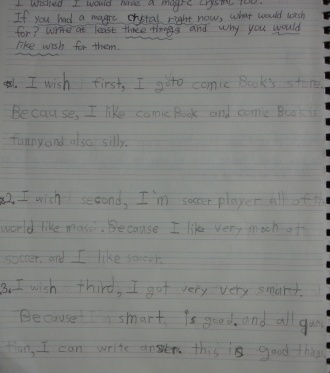 I wished I would have a magic crystal too.
If you had a magic crystal right now, what would wish
for? Write at least three things and why you would
like wish for them.
1. I wish first, I go to comic Book's store,
Because, I like comic Book and comic Book is
funny and also silly.
2. I wish second, I'm soccer player all of the
world like massi. Because I like very moch at
soccer. and I like soccer.
3. I wish third, I got very very smart.
Because I'm smart is good. and all ques
tion, I can write anser. this is good things